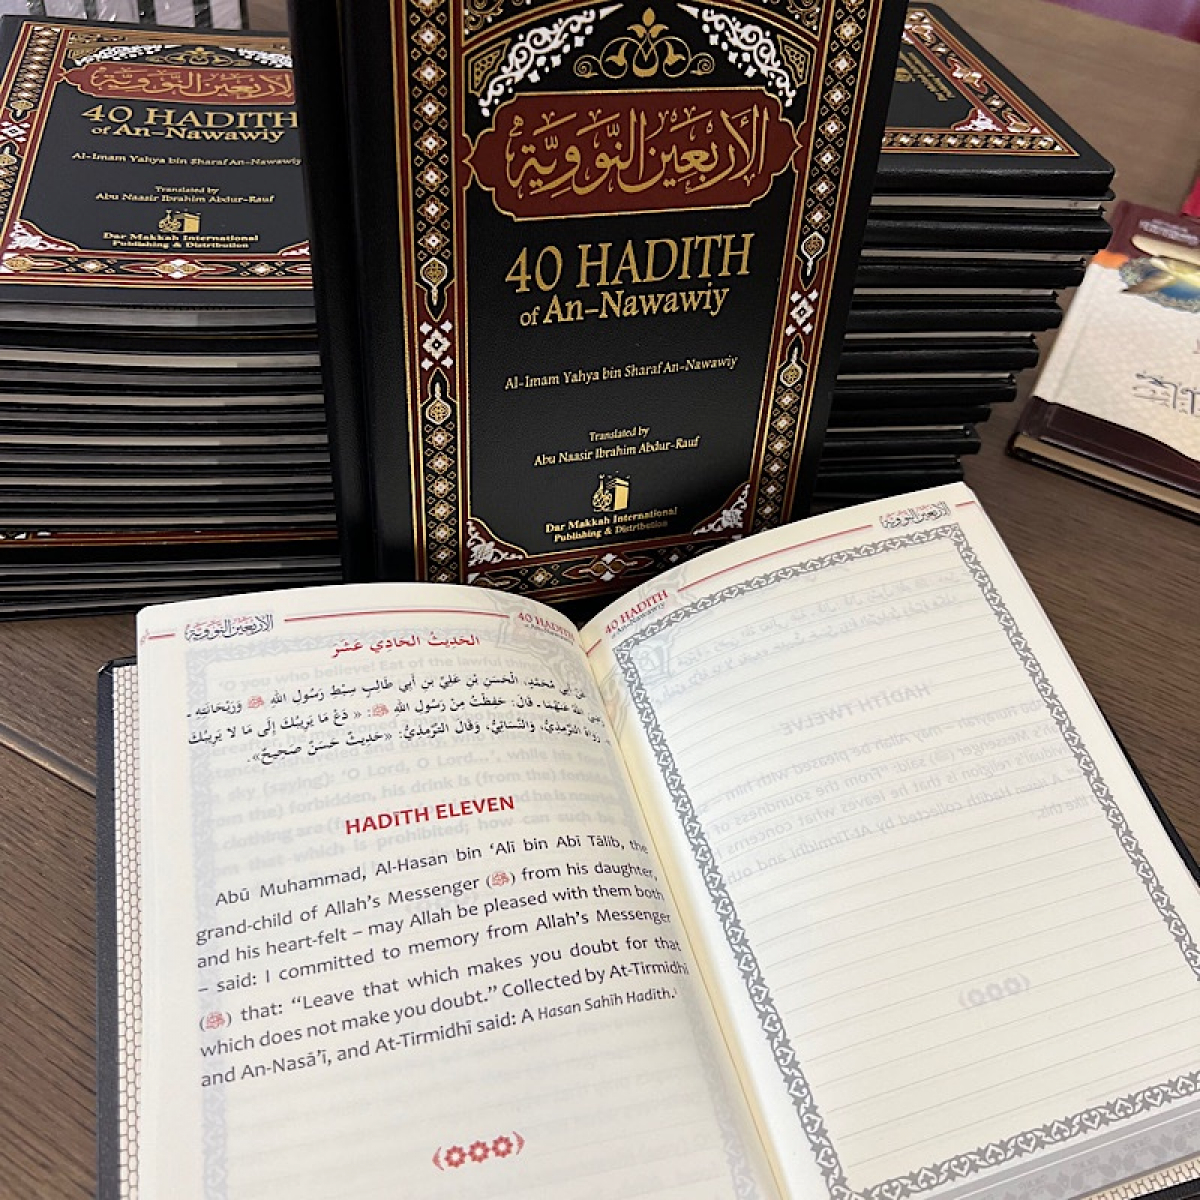 الأربعين النووية
40 HADITH
of An-Nawawiy
Al-Imam Yahya bin Sharaf An-Nawawiy
Translated by
Abu Naasir Ibrahim Abdur-Rauf
Dar Makkah International
Publishing & Distribution
الأَرْبَعِينَ النَّوَوِيَّة
40 HADITH
of An-Nawawiy
Al-Imam Yahya bin Sharaf An-Nawawiy
Translated by
Abu Naasir Ibrahim Abdur-Rauf
Dar Makkah International
Publishing & Distribution
الأربعين النووية
40 HADITH
of An-Nawawiy
الحَدِيثُ الحَادِي عَشَر
عَنْ أَبِي مُحَمَّدٍ، الْحَسَنِ بْنِ عَلِيِّ بْنِ أَبِي طَالِبٍ سِبْطِ رَسُولِ اللهِ ﷺ وَرَيْحَانَتِهِ ـ
اللهُ عَنْهُمَا ـ قَالَ: حَفِظْتُ مِنْ رَسُولِ اللهِ ﷺ: «دَعْ مَا يَرِيبُكَ إِلَى مَا لَا يَرِيبُكَ
رَوَاهُ التِّرْمِذِيُّ، وَالنَّسَائِيُّ، وَقَالَ التِّرْمِذِيُّ: «حَدِيثٌ حَسَنٌ صَحِيحٌ».
HADĪTH ELEVEN
Abū Muhammad, Al-Hasan bin ‘Alī bin Abī Tālib, the
grand-child of Allah’s Messenger (ﷺ) from his daughter,
and his heart-felt – may Allah be pleased with them both
– said: I committed to memory from Allah’s Messenger
(ﷺ) that: “Leave that which makes you doubt for that
which does not make you doubt.” Collected by At-Tirmidhī
and An-Nasā’ī, and At-Tirmidhī said: A Hasan Sahīh Hadīth.¹
40 HADITH
of An-Nawawiy
الأربعين النووية